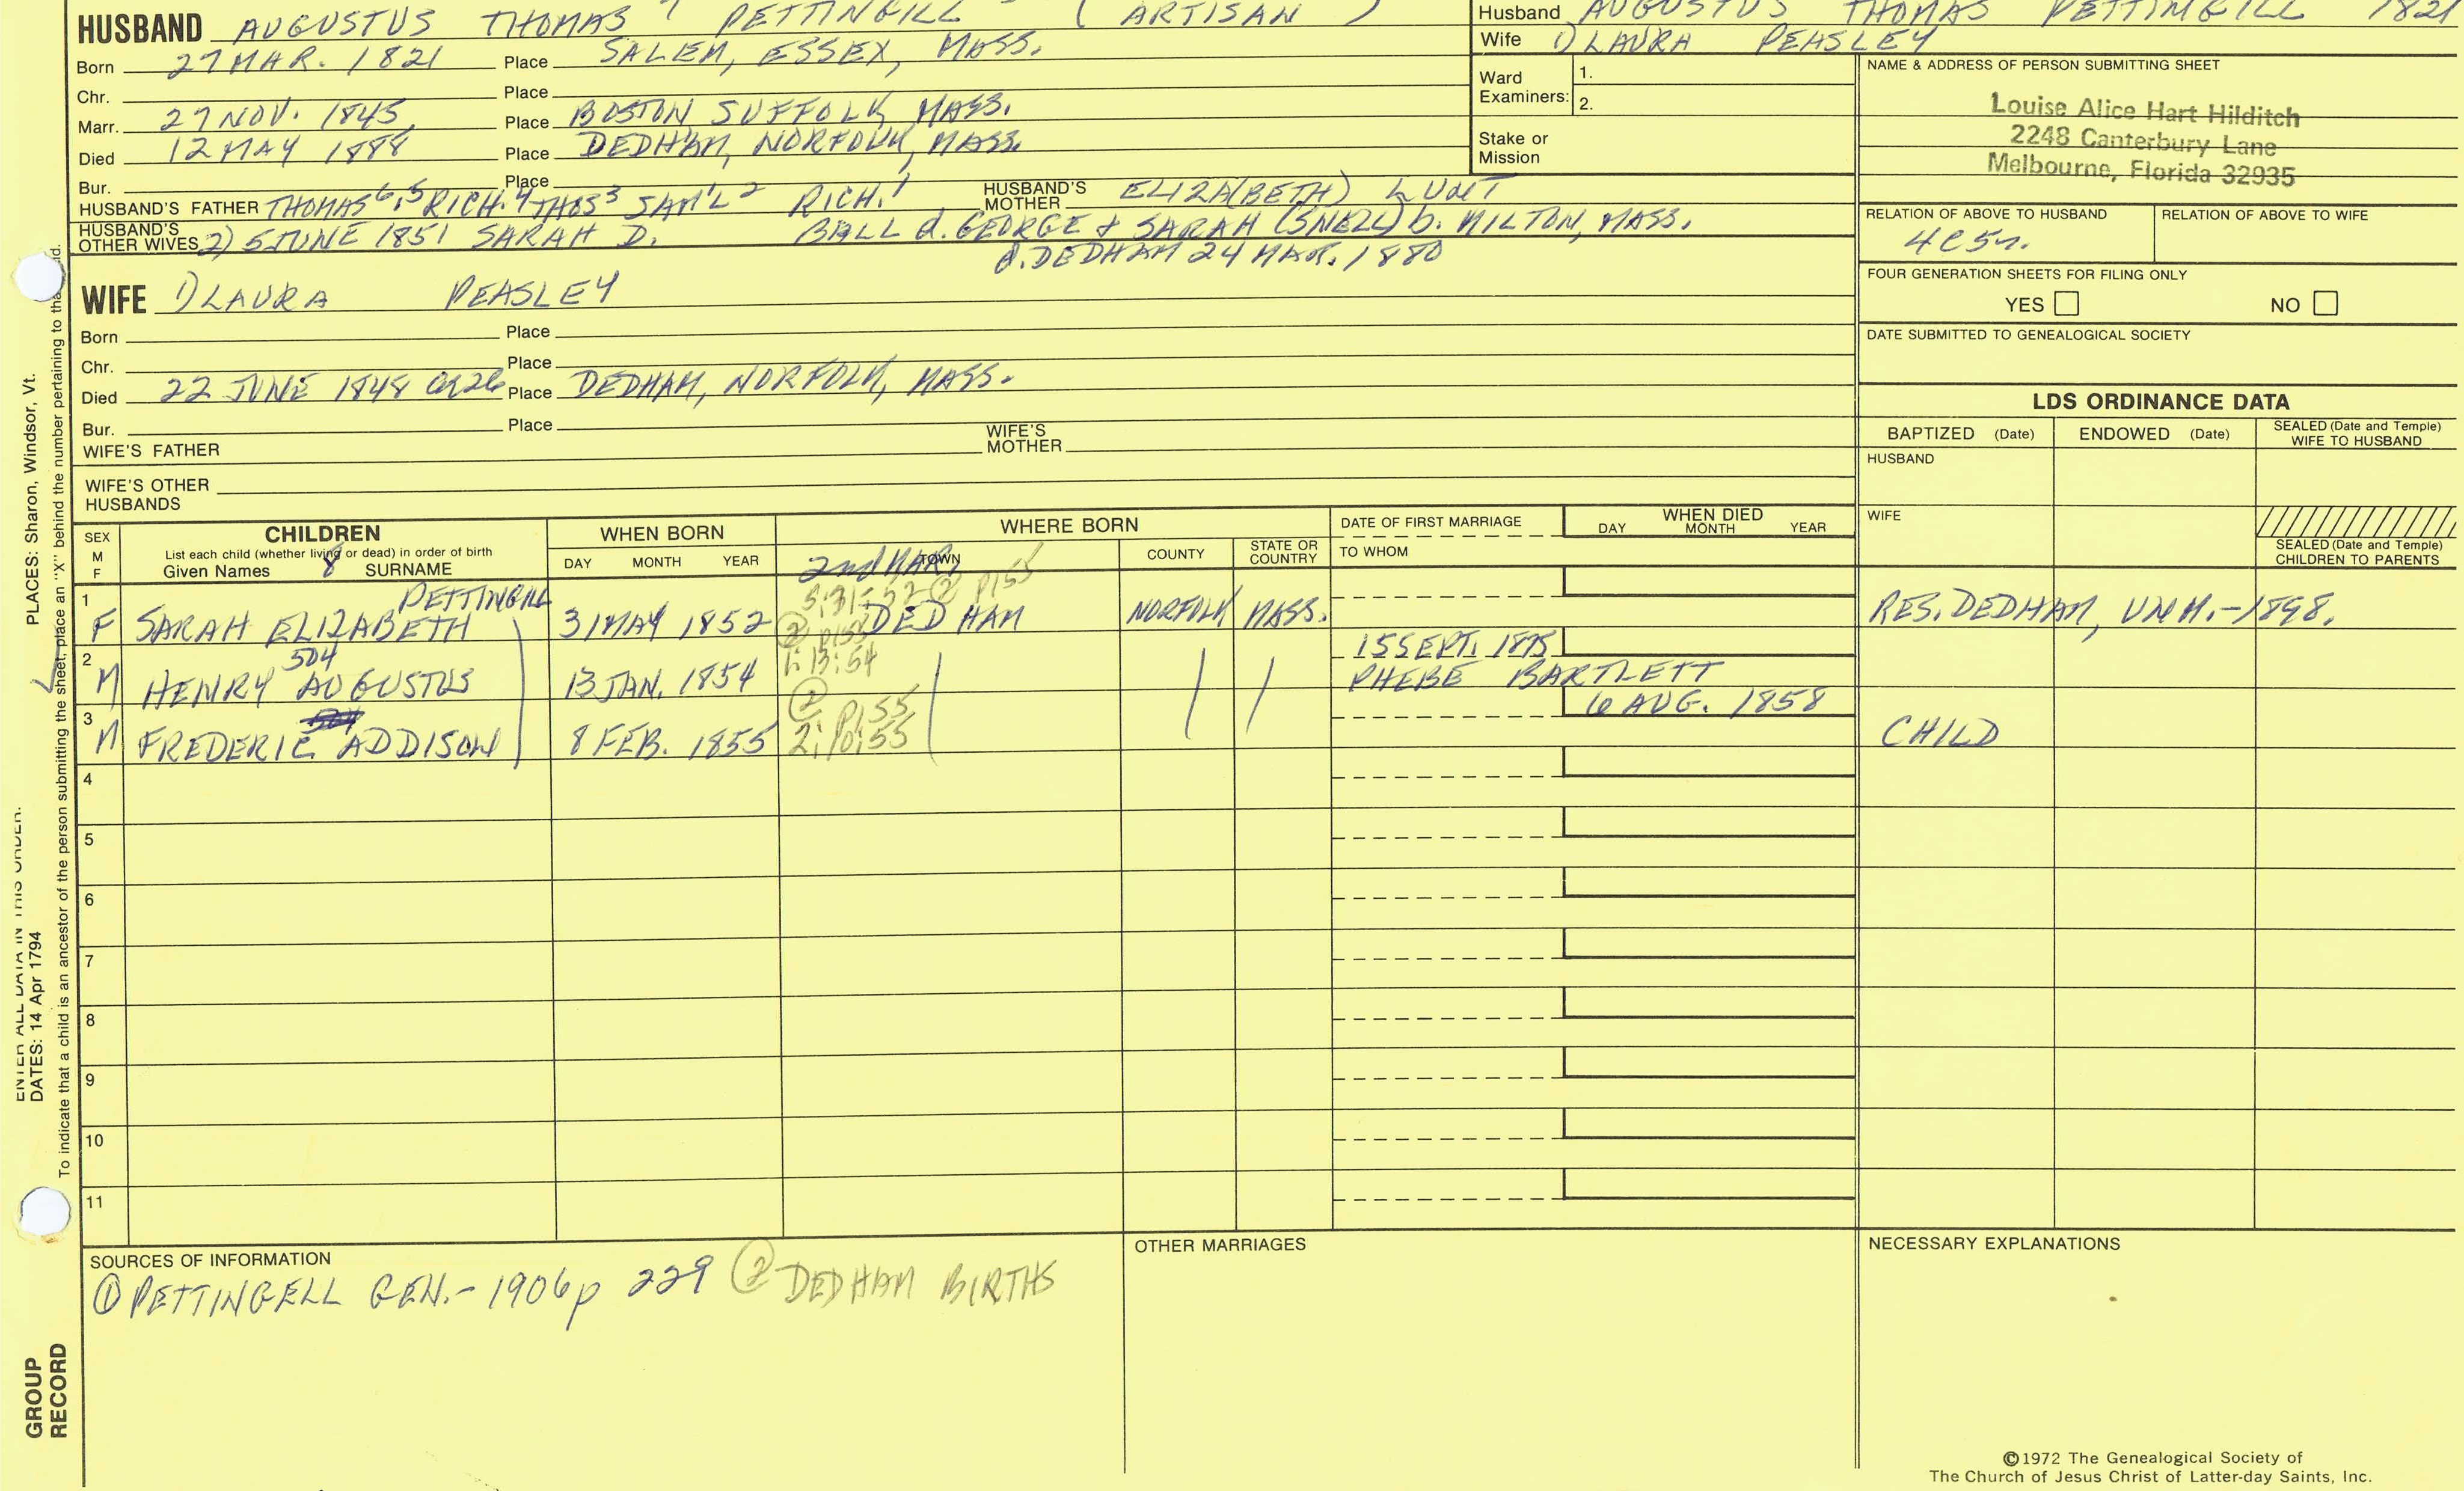 HUSBAND AUGUSTUS THOMAS 7 PETTINGILL (ARTISAN)
Born 27 MAR. 1821 Place SALEM, ESSEX, MASS.
Chr. Place
Marr. 27 NOV. 1845 Place BOSTON SUFFOLK MASS.
Died 12 MAY 1888 Place DEDHAM, NORFOLK, MASS.
Bur. Place
HUSBAND'S FATHER THOMAS 6,5 RICH. 4 THOS 3 SAM'L 2 RICH. 1 HUSBAND'S MOTHER ELIZA(BETH) LUNT
HUSBAND'S OTHER WIVES 2) 5 JUNE 1851 SARAH D. BALL d. GEORGE & SARAH (SNELL) b. MILTON, MASS.
d. DEDHAM 24 MAR. 1880
Husband AUGUSTUS THOMAS PETTINGILL 1821
Wife 1) LAURA PEASLEY
Ward Examiners: 1.
2.
Stake or Mission
NAME & ADDRESS OF PERSON SUBMITTING SHEET
Louise Alice Hart Hilditch
2248 Canterbury Lane
Melbourne, Florida 32935
RELATION OF ABOVE TO HUSBAND RELATION OF ABOVE TO WIFE
4C5r.
FOUR GENERATION SHEETS FOR FILING ONLY
YES NO
DATE SUBMITTED TO GENEALOGICAL SOCIETY
WIFE 1) LAURA PEASLEY
Born Place
Chr. Place
Died 22 JUNE 1848 OR 26 Place DEDHAM, NORFOLK, MASS.
Bur. Place
WIFE'S FATHER WIFE'S MOTHER
WIFE'S OTHER HUSBANDS
LDS ORDINANCE DATA
BAPTIZED (Date) ENDOWED (Date) SEALED (Date and Temple) WIFE TO HUSBAND
HUSBAND
WIFE
SEALED (Date and Temple) CHILDREN TO PARENTS
SEX M F
CHILDREN
List each child (whether living or dead) in order of birth
Given Names 8 SURNAME
WHEN BORN
DAY MONTH YEAR
WHERE BORN
2nd MAR. TOWN COUNTY STATE OR COUNTRY
DATE OF FIRST MARRIAGE
TO WHOM
WHEN DIED
DAY MONTH YEAR
PETTINGILL
5:31-52 ② p155
1 F SARAH ELIZABETH 31 MAY 1852 DEDHAM NORFOLK MASS. RES. DEDHAM, UNM.-1898.
② p155
1:13:54
504
2 M HENRY AUGUSTUS 13 JAN. 1854 15 SEPT. 1875
PHEBE BARTLETT
② p155
2:10:55
3 M FREDERIC ADDISON 8 FEB. 1855 6 AUG. 1858 CHILD
4
5
6
7
8
9
10
11
SOURCES OF INFORMATION
① PETTINGELL GEN.- 1906 p 229 ② DEDHAM BIRTHS
OTHER MARRIAGES
NECESSARY EXPLANATIONS
©1972 The Genealogical Society of
The Church of Jesus Christ of Latter-day Saints, Inc.
PLACES: Sharon, Windsor, Vt.
ENTER ALL DATA IN THIS ORDER.
DATES: 14 Apr 1794
To indicate that a child is an ancestor of the person submitting the sheet, place an "X" behind the number pertaining to that child.
GROUP
RECORD